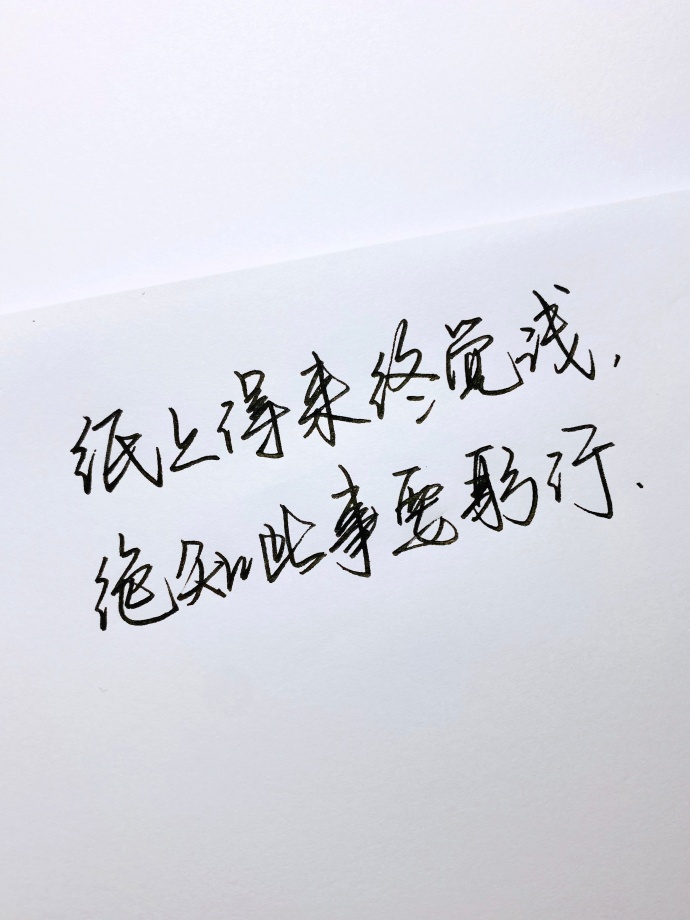 纸上得来终觉浅,
绝知此事要躬行.